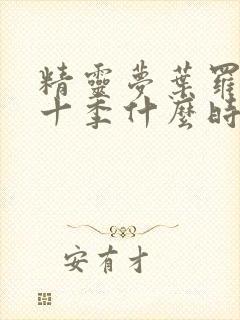 精靈夢葉羅
十季什麼時
安有才